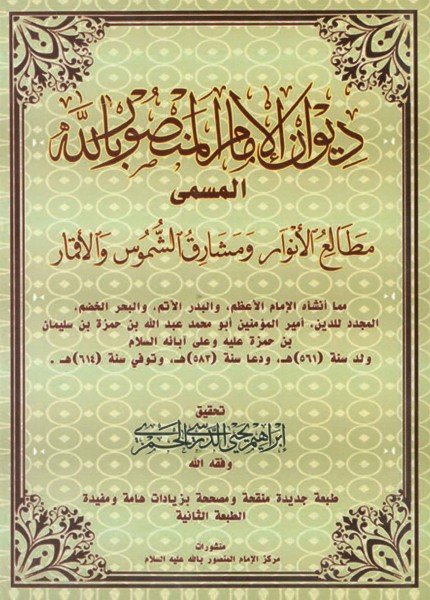 ديوان الإمام المنصور بالله
المسمى
مطالع الأنوار ومشارق الشموس والأقمار
مما أنشأه الإمام الأعظم، والبدر الأتم، والبحر الخضم،
المجدد للدين، أمير المؤمنين أبو محمد عبد الله بن حمزة بن سليمان
بن حمزة عليه وعلى آبائه السلام
ولد سنة (٥٦١) هـ، ودعا سنة (٥٨٣) هـ، وتوفي سنة (٦١٤) هـ.
تحقيق
إبراهيم يحيى الدرسي الحمزي
وفقه الله
طبعة جديدة منقحة ومصححة بزيادات هامة ومفيدة
الطبعة الثانية
منشورات
مركز الإمام المنصور بالله عليه السلام